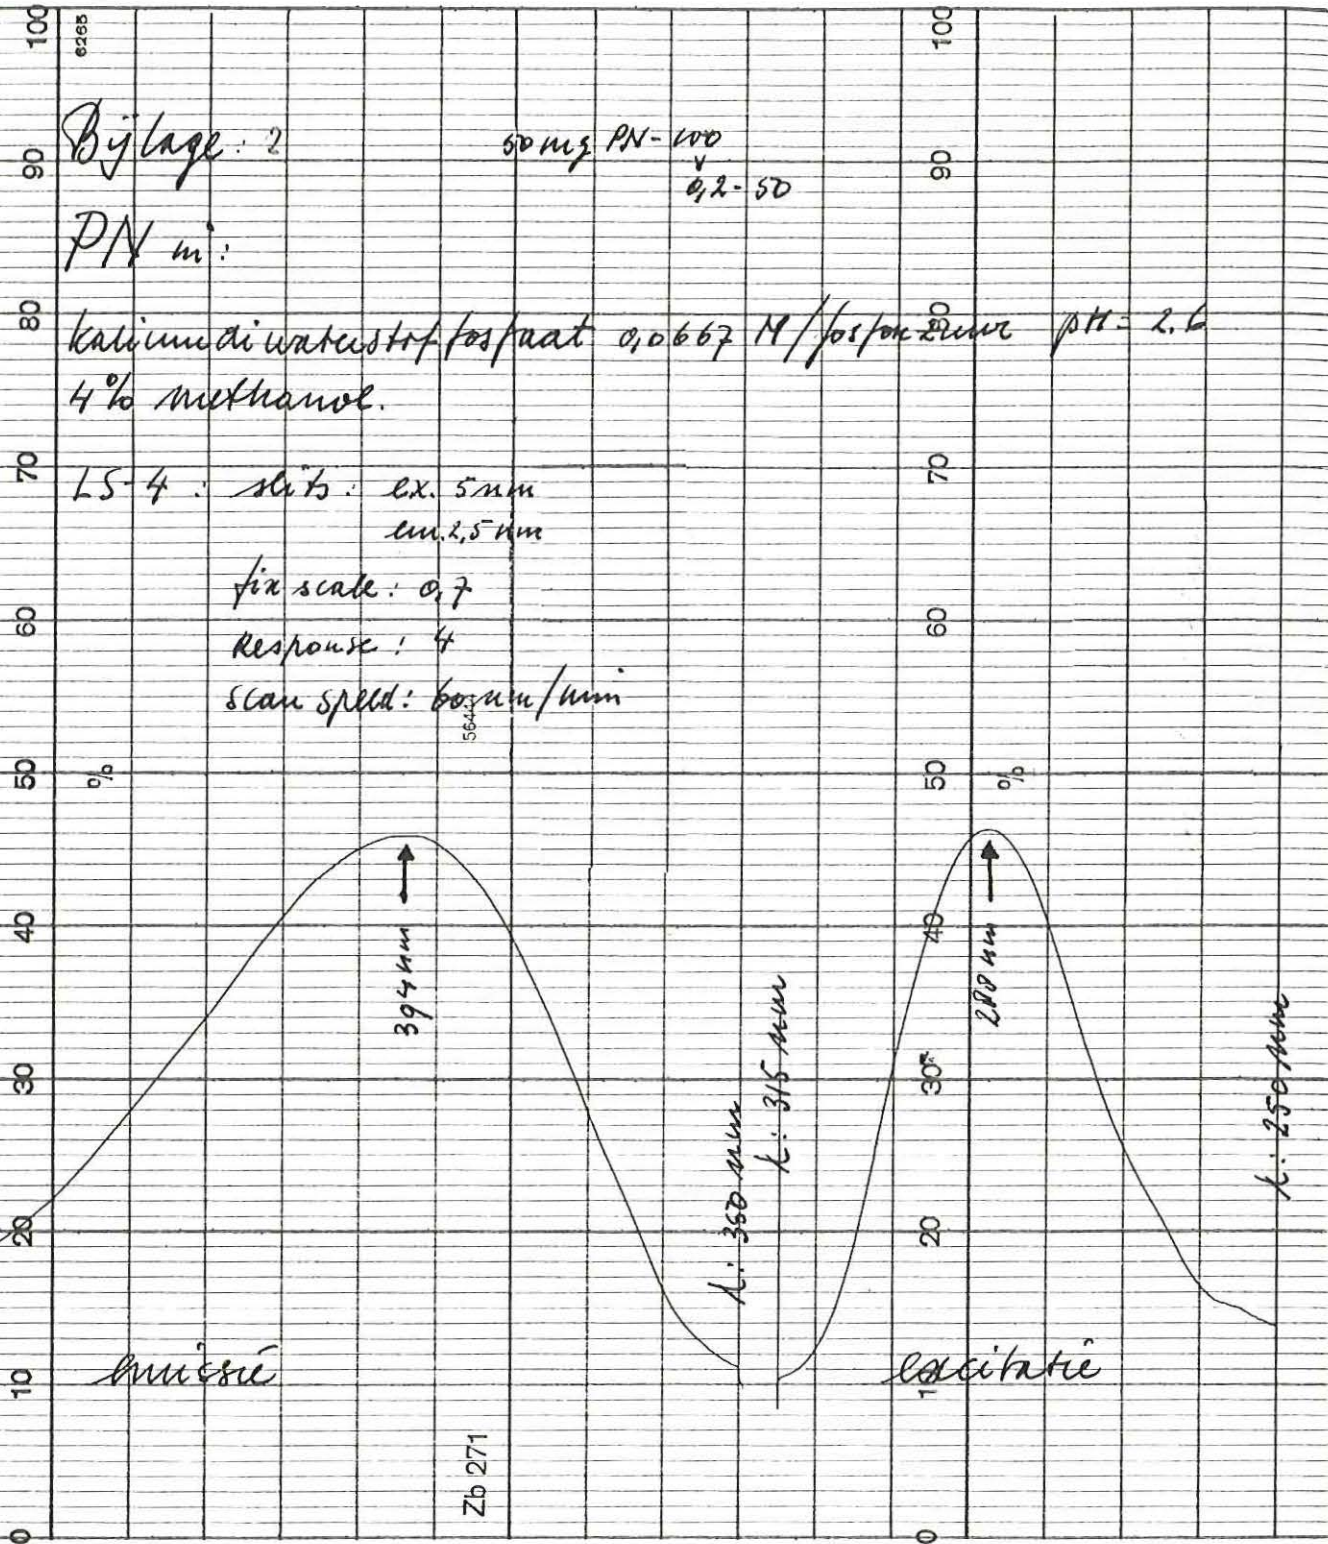 100
6265
100
Bijlage: 2
50 mg PN-100
0,2-50
90
90
PN in:
80
80
Kaliumdiwaterstoffosfaat 0,0667 M/fosforzuur pH = 2.6
4% methanol.
70
70
LS-4: slits: ex. 5nm
em. 2,5 nm
fix scale: 0,7
60
60
Response: 4
scan speed: 60 nm/min
50
%
50
%
40
40
394 nm
280 nm
30
30
λ: 350 nm
λ: 315 nm
λ: 250 nm
20
20
10
emissie
10
excitatie
Zb 271
0
0